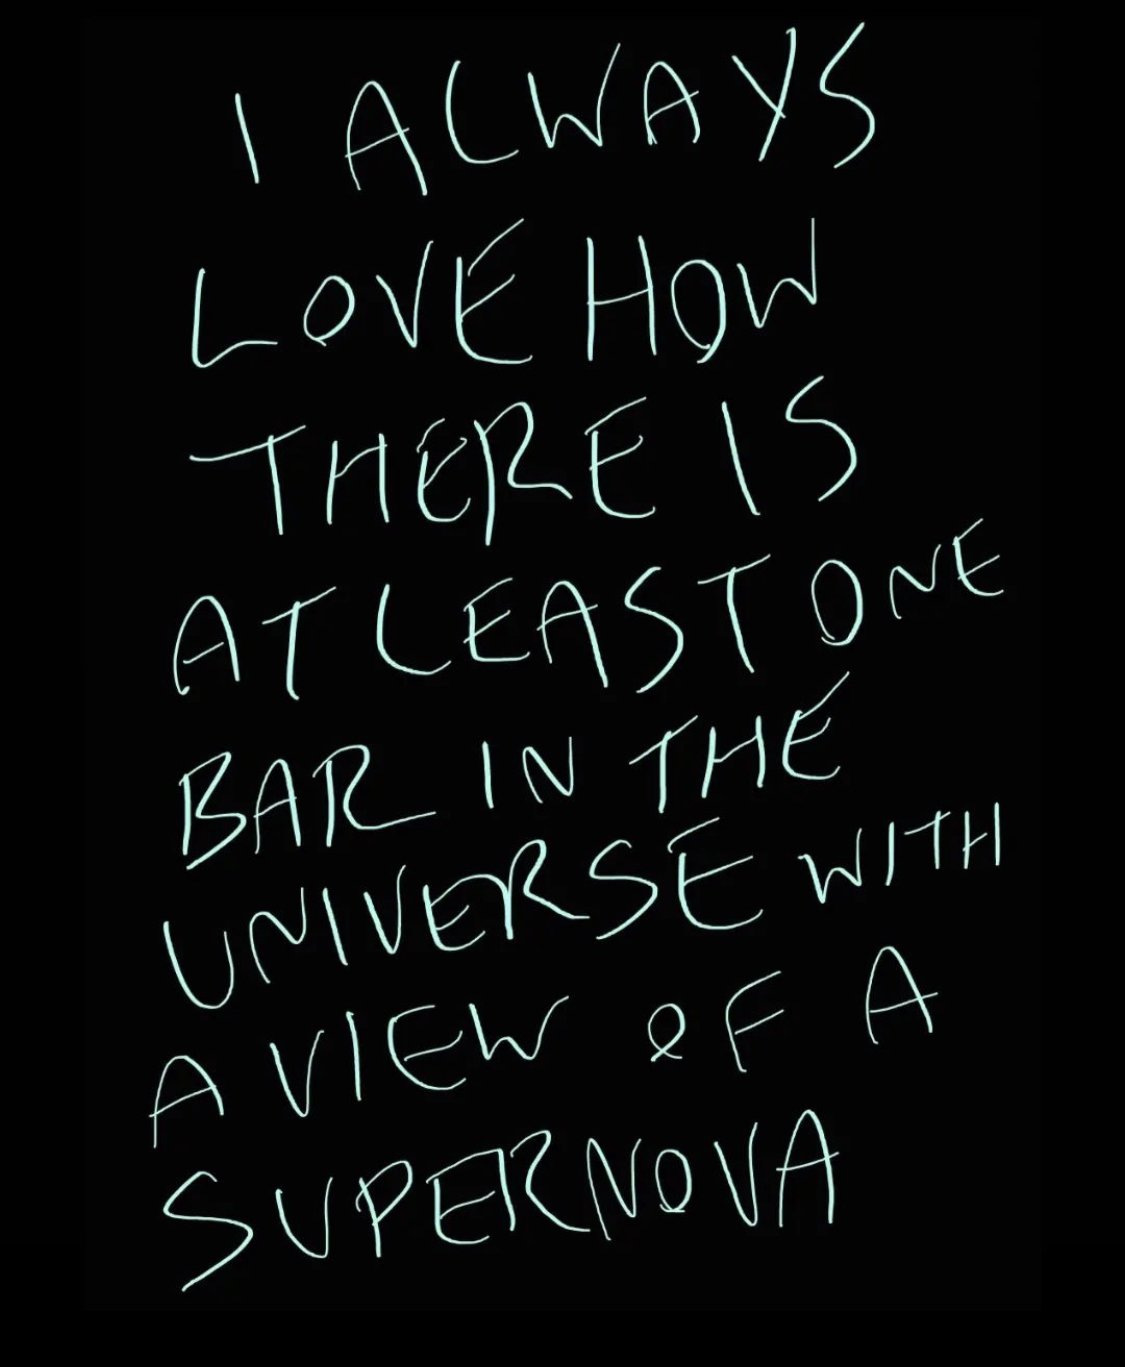 I ALWAYS
LOVE HOW
THERE IS
AT LEAST ONE
BAR IN THE
UNIVERSE WITH
A VIEW OF A
SUPERNOVA